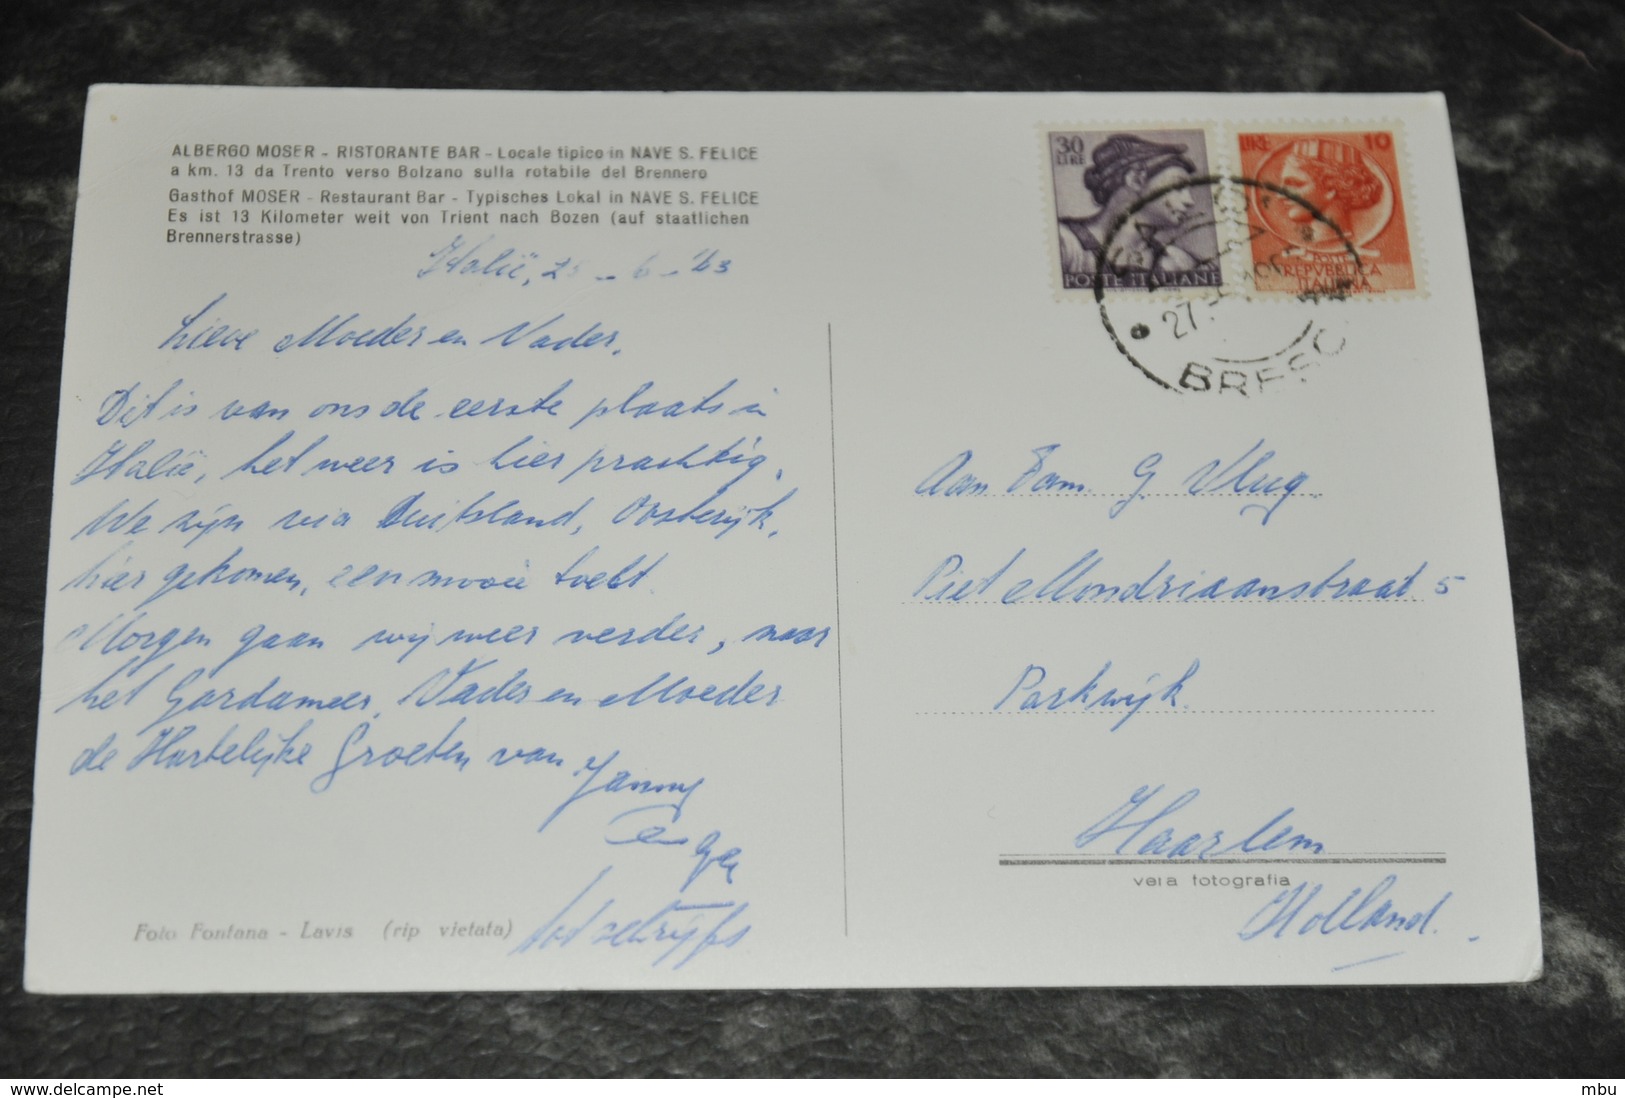 ALBERGO MOSER - RISTORANTE BAR - Locale tipico in NAVE S. FELICE
a km. 13 da Trento verso Bolzano sulla rotabile del Brennero
Gasthof MOSER - Restaurant Bar - Typisches Lokal in NAVE S. FELICE
Es ist 13 Kilometer weit von Trient nach Bozen (auf staatlichen
Brennerstrasse)
Italië, 25-6-'63
Lieve Moeder en Vader.
Dit is van ons de eerste plaats in
Italië, het weer is hier prachtig.
We zijn via Duitsland, Oostenrijk,
hier gekomen, een mooie tocht.
Morgen gaan wij weer verder, naar
het Gardameer. Vader en Moeder
de Hartelijke Groeten van Janny
en Ger
tot schrijfs
Foto Fontana - Lavis (rip vietata)
30 LIRE
POSTE ITALIANE
LIRE 10
POSTE
REPVBBLICA
ITALIANA
27
BRESC
Aan Fam. G. Vlug.
Piet Mondriaanstraat 5
Parkwijk.
Haarlem
vera fotografia
Holland.
© delcampe.net
mbu